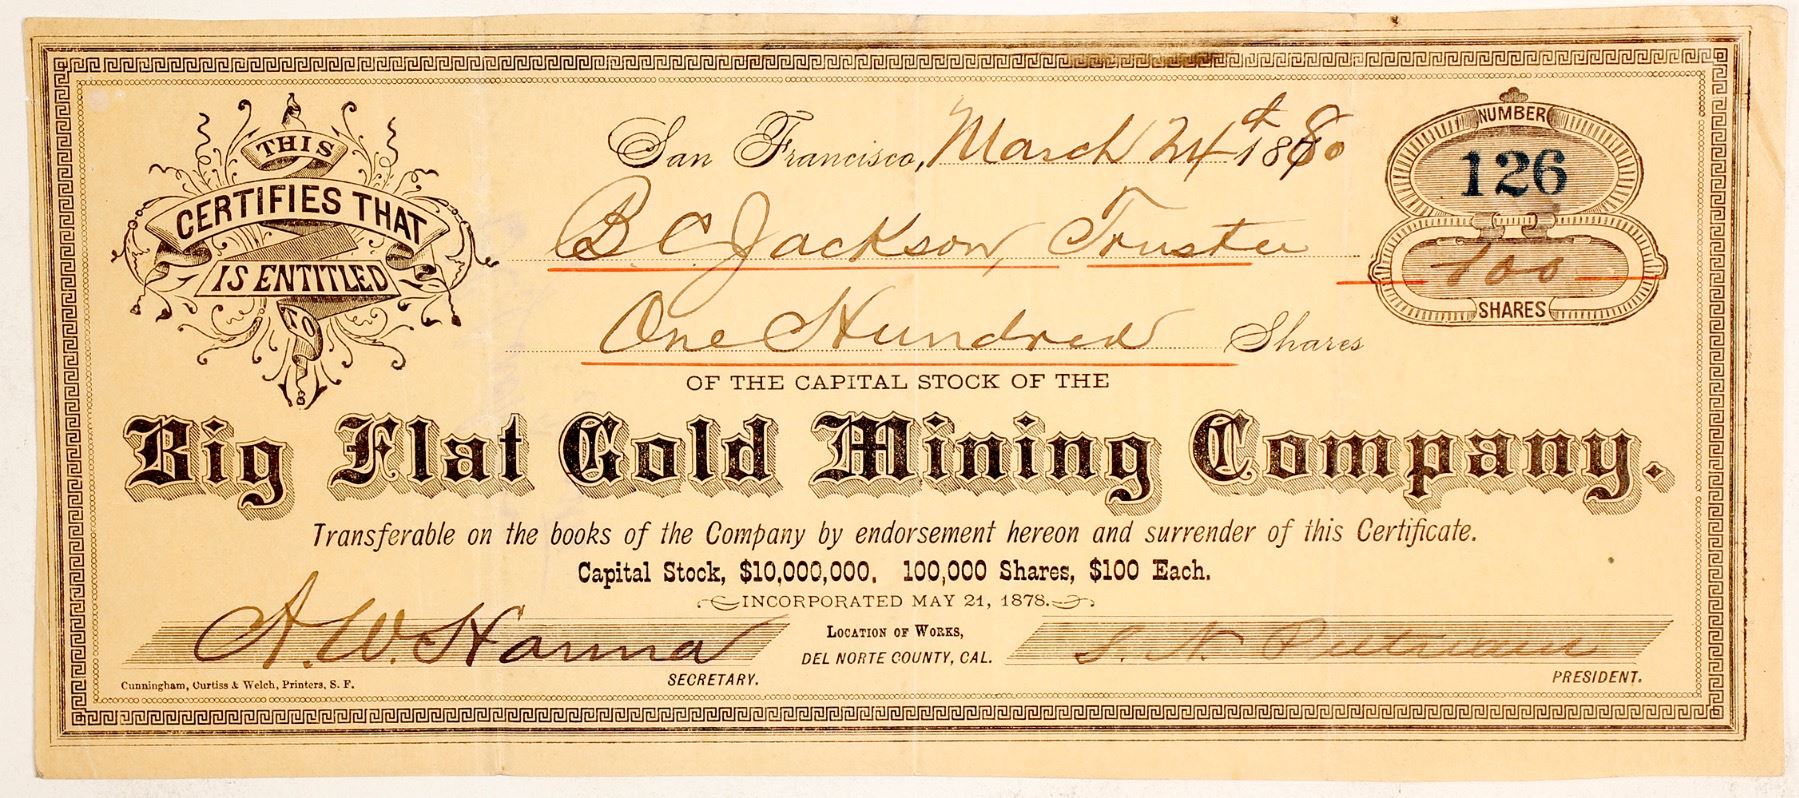 THIS
CERTIFIES THAT
IS ENTITLED
TO
San Francisco, March 24th 1880
NUMBER
126
B. C. Jackson, Trustee
100
SHARES
One Hundred Shares
OF THE CAPITAL STOCK OF THE
Big Flat Gold Mining Company.
Transferable on the books of the Company by endorsement hereon and surrender of this Certificate.
Capital Stock, $10,000,000. 100,000 Shares, $100 Each.
INCORPORATED MAY 21, 1878.
A. W. Hanna
LOCATION OF WORKS,
DEL NORTE COUNTY, CAL.
S. N. Putnam
SECRETARY.
PRESIDENT.
Cunningham, Curtiss & Welch, Printers, S. F.